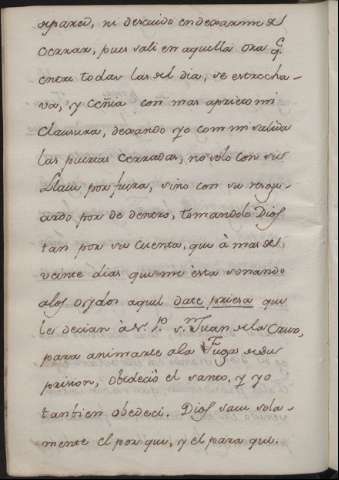 reparo, ni descuido en dexarme de
cerrar, pues sali en aquella ora q̃
entre todas las del dia, se estrecha-
va, y ceñia con mas aprieto mi
clausura, dexando yo con mi salida
las puertas cerradas, no solo con su
llave por fuera, sino con su resgu-
ardo por de dentro, tomandolo Dios
tan por su cuenta, que à mas de
veinte dias que me esta sonando
a los oydos aquel date priesa que
le decian à N. P.e S.n Juan de la Cruz,
para animarle a la Fuga de su
prision, obedecio el santo, y yo
tambien obedeci. Dios save sola-
mente el por que, y el para que.